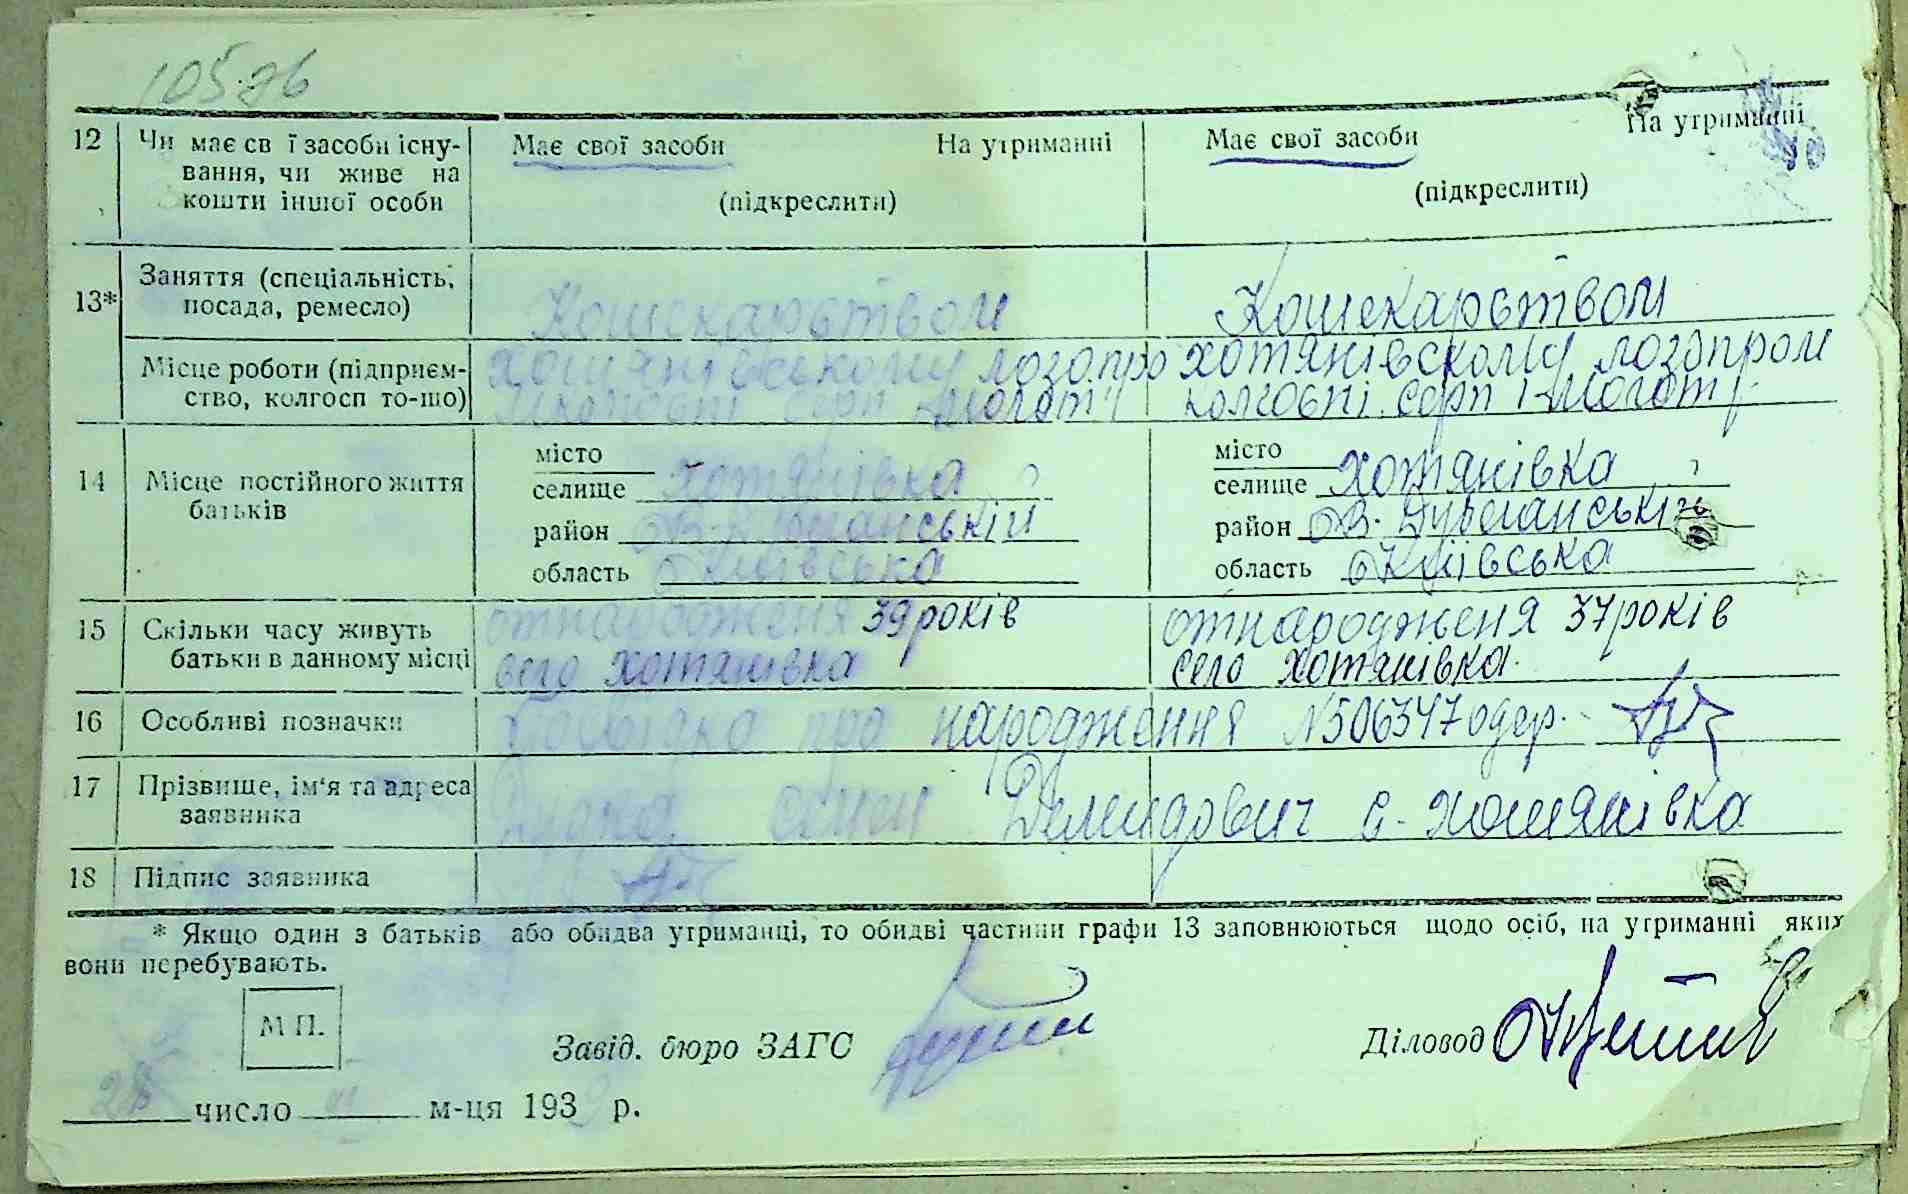 105.76
12 Чи має св ї засоби існу- Має свої засоби На утриманні Має свої засоби На утриманні
вання, чи живе на
кошти іншої особи (підкреслити) (підкреслити)
13* Заняття (спеціальність, посада, ремесло) Кошекарством Кошекарством
Місце роботи (підприєм- Хотянівському лозопро хотянівскому лозопром
ство, колгосп то-що) серп молот колгоспі серп і молот
14 Місце постійного життя місто місто
батьків селище хотянівка селище хотянівка
район район В. Дубечанській
область Київська область Київська
15 Скільки часу живуть отнародженя 39 років отнародженя 37 років
батьки в данному місці село хотянівка село хотянівка
16 Особливі позначки про народження N506347 одер.
17 Прізвище, ім'я та адреса Демидович с. хотянівка
заявника
18 Підпис заявника
* Якщо один з батьків або обидва утриманці, то обидві частини графи 13 заповнюються щодо осіб, на утриманні яких
вони перебувають.
М П.
Завід. бюро ЗАГС Діловод
28 число м-ця 193 р.